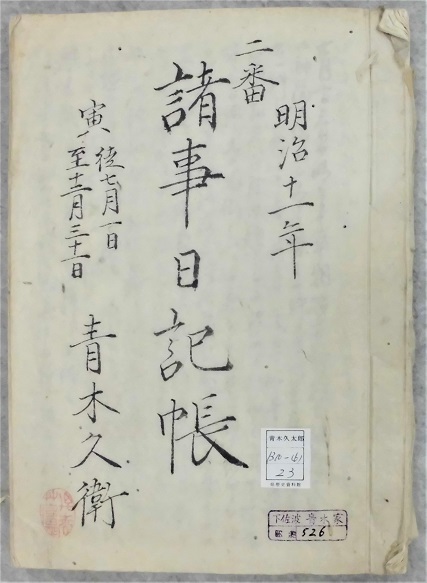 二番
明治十一年
諸事日記帳
寅
従七月一日
至十二月三十一日
青木久衛
青木久太郎
23
下佐波 青木家
526